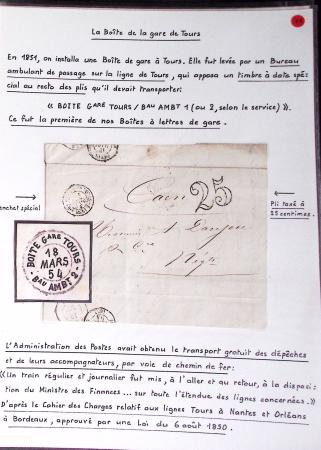 La Boîte de la gare de Tours
En 1851, on installa une Boîte de gare à Tours. Elle fut levée par un Bureau
ambulant de passage sur la ligne de Tours, qui apposa un timbre à date spé-
cial au recto des plis qu'il devait transporter:
« BOITE GARE TOURS / BAU AMBT 1 (ou 2, selon le service) ».
Ce fut la première de nos Boîtes à lettres de gare.
Caen
25
Pli taxé à
25 centimes.
anchet spécial
BOITE GARE TOURS
18
MARS
54
BAU AMBT 2
L'Administration des Postes avait obtenu le transport gratuit des dépêches
et de leurs accompagnateurs, par voie de chemin de fer:
«Un train régulier et journalier fut mis, à l'aller et au retour, à la disposi
tion du Ministre des Finances ... sur toute l'étendue des lignes concernées.»
D'après le Cahier des Charges relatif aux lignes Tours à Nantes et Orléans
à Bordeaux, approuvé par une Loi du 6 août 1850.